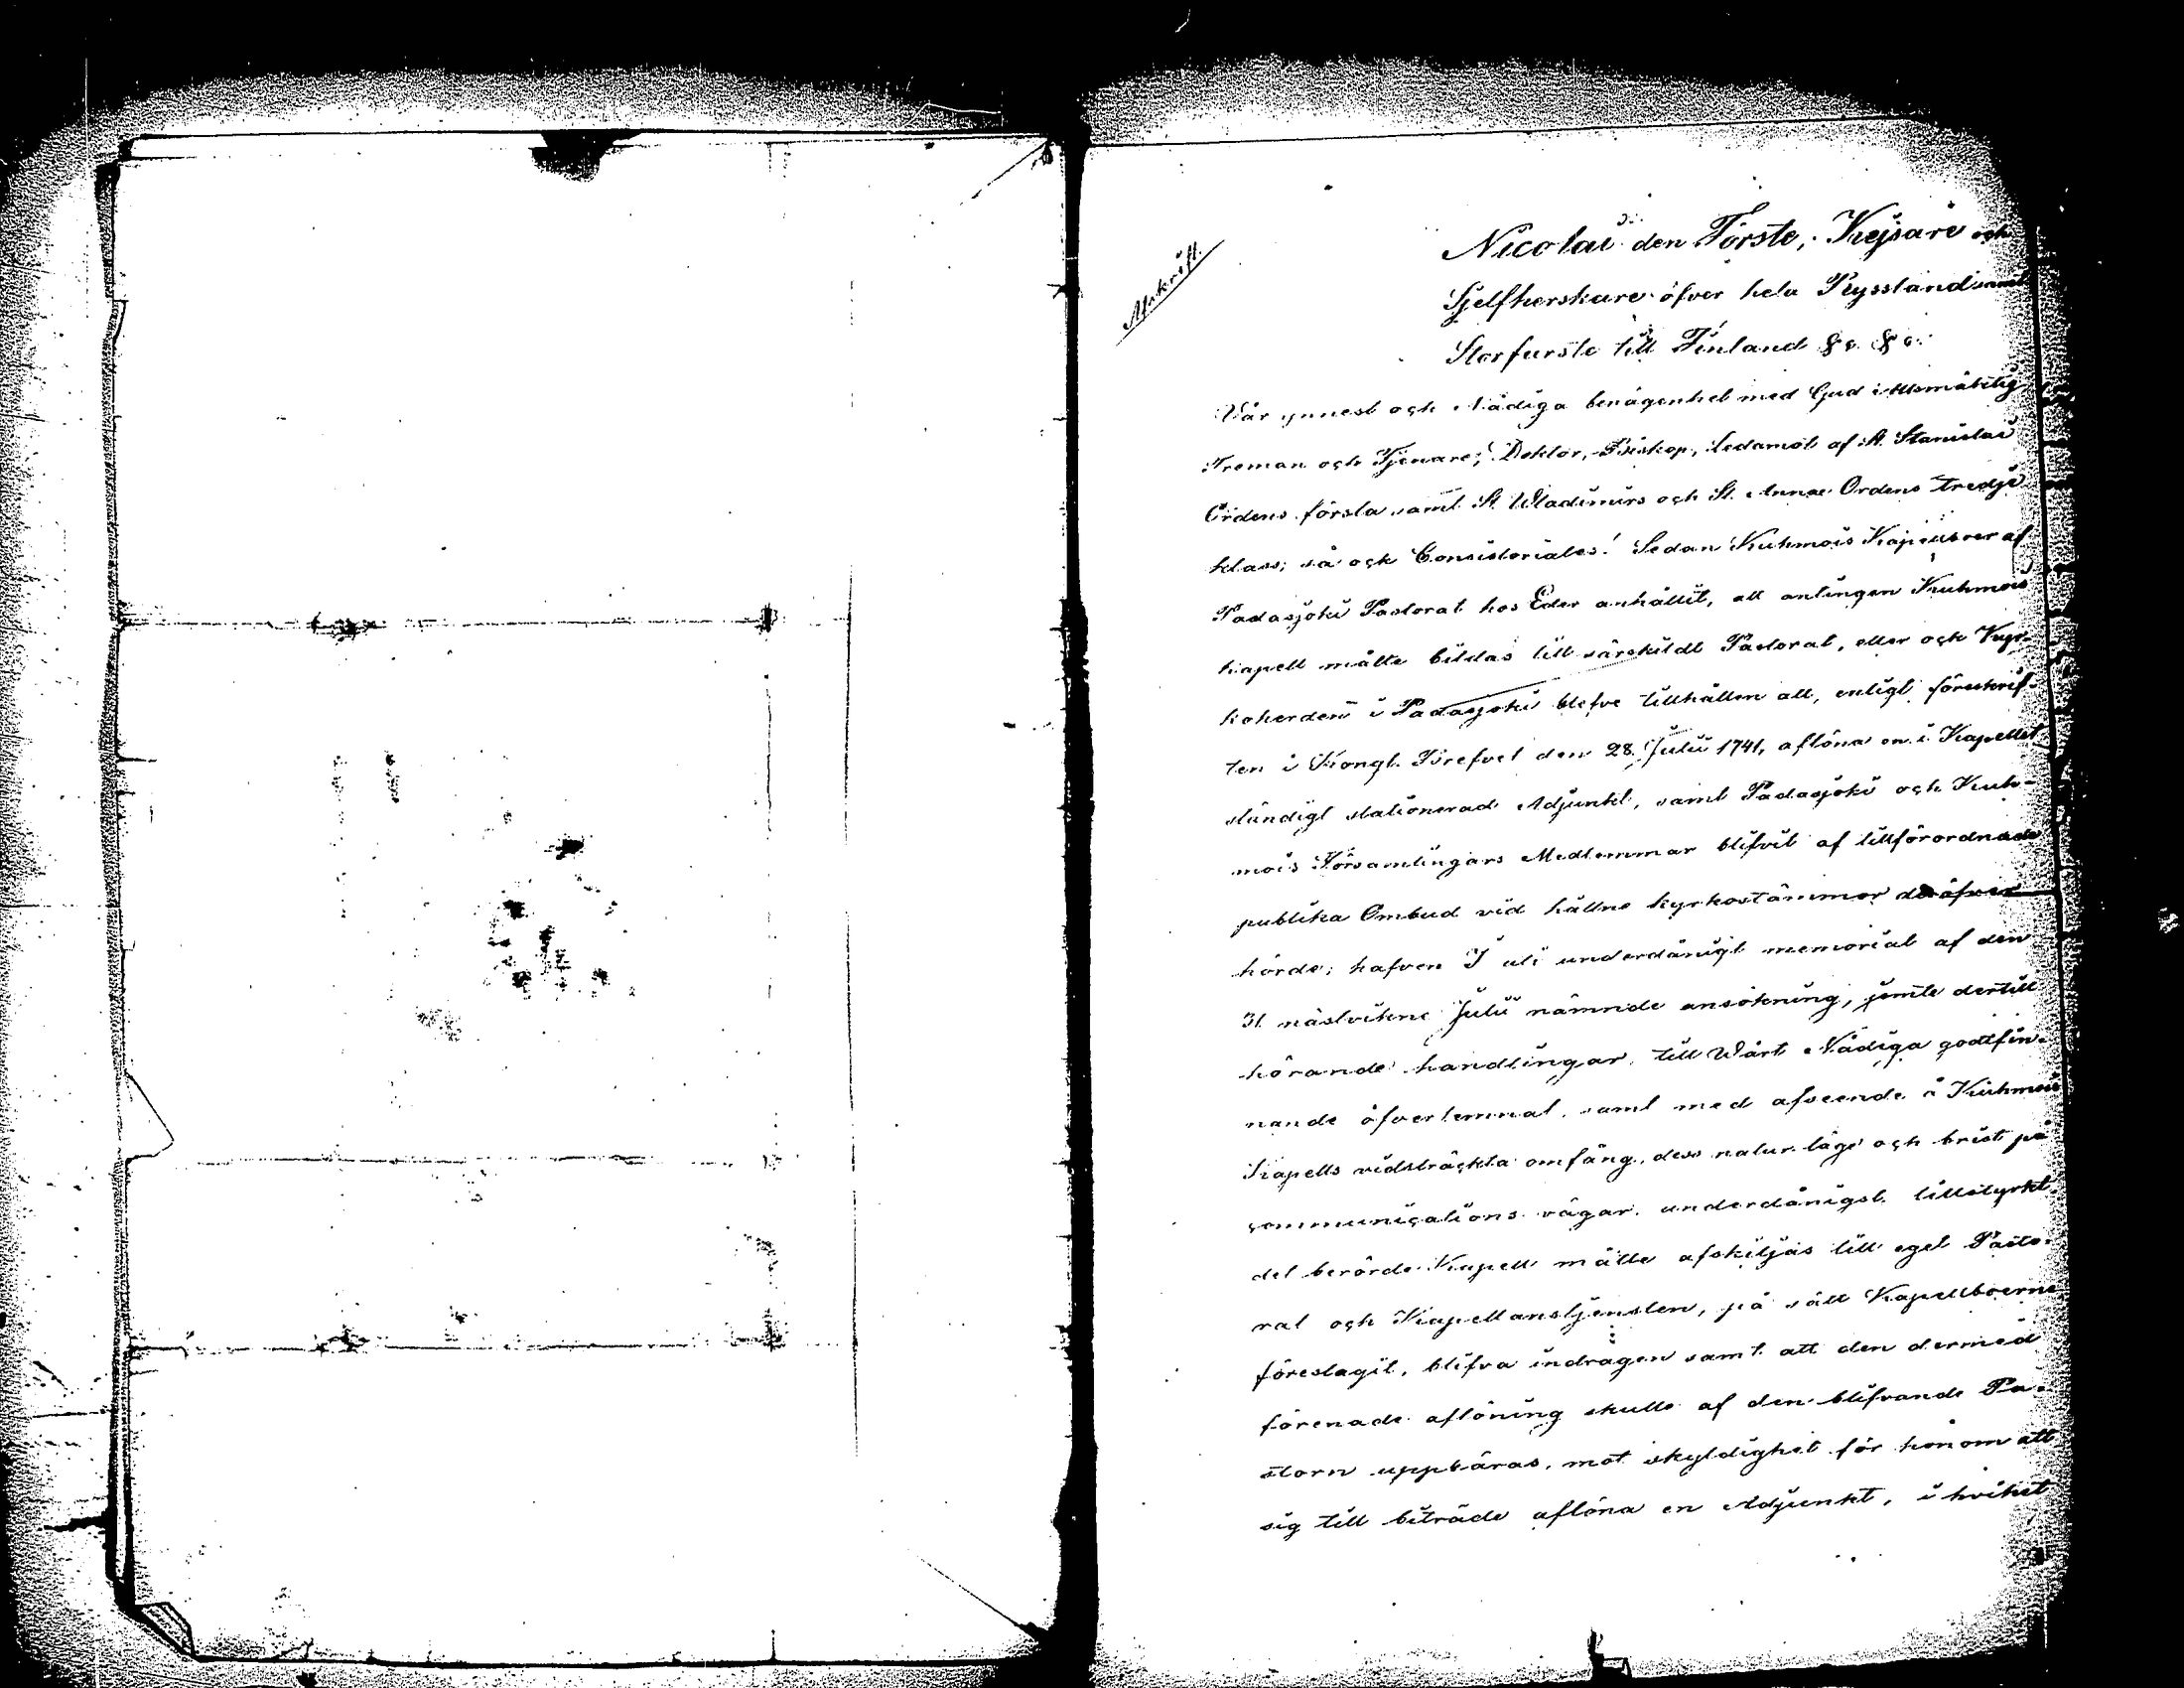 Afskrift.
Nicolai den Förste, Kejsare och
Sjelfherskare öfver hela Ryssland samt
Storfurste till Finland &c. &c.
Vår ynnest och Nådiga benägenhet med Gud Allsmäktig
Troman och Tjenare, Doktor, Biskop, Ledamot af St. Stanislai
Ordens första samt St. Wladimirs och St. Annæ Ordens tredje
klass; så ock Consistoriales! Sedan Kuhmois Kapellboer af
Padasjoki Pastorat hos Eder anhållit, att antingen Kuhmois
kapell måtte bildas till särskildt Pastorat, eller ock Kyr-
koherden i Padasjoki blefve tillhållen att, enligt föreskrif-
ten i Kongl. Brefvet den 28 Julii 1741, aflöna en i Kapellet
ständigt stationerad Adjunkt, samt Padasjoki och Kuh-
mois Församlingars Medlemmar blifvit af tillförordnade
publika Ombud vid hållne kyrkostämmor deröfver
hörde; hafven I uti underdånigt memorial af den
31 nästvikne Julii nämnde ansökning, jemte dertill
hörande handlingar, till Wårt Nådiga godtfin-
nande öfverlemnat, samt med afseende å Kuhmois
Kapells vidsträckta omfång, dess natur läge och brist på
communications vägar, underdånigst tillstyrkt
det berörde Kapell måtte afskiljas till eget Pasto-
rat och Kapellanstjensten, på sätt Kapellboerne
föreslagit, blifva indragen samt att den dermed
förenade aflöning skulle af den blifvande Pa-
storn uppbäras, mot skyldighet för honom att
sig till biträde aflöna en Adjunkt, i hvilket